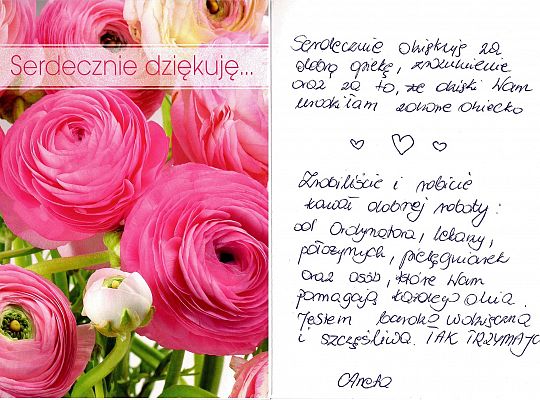 Serdecznie dziękuję...
Serdecznie dziękuję za
dobrą opiekę, zrozumienie
oraz za to, że dzięki Wam
urodziłam zdrowe dziecko
Zrobiliście i robicie
kawał dobrej roboty:
od Ordynatora, lekarzy,
położnych, pielęgniarek
oraz osób, które Wam
pomagają każdego dnia.
Jestem bardzo wdzięczna
i szczęśliwa. TAK TRZYMAJC
Aneta